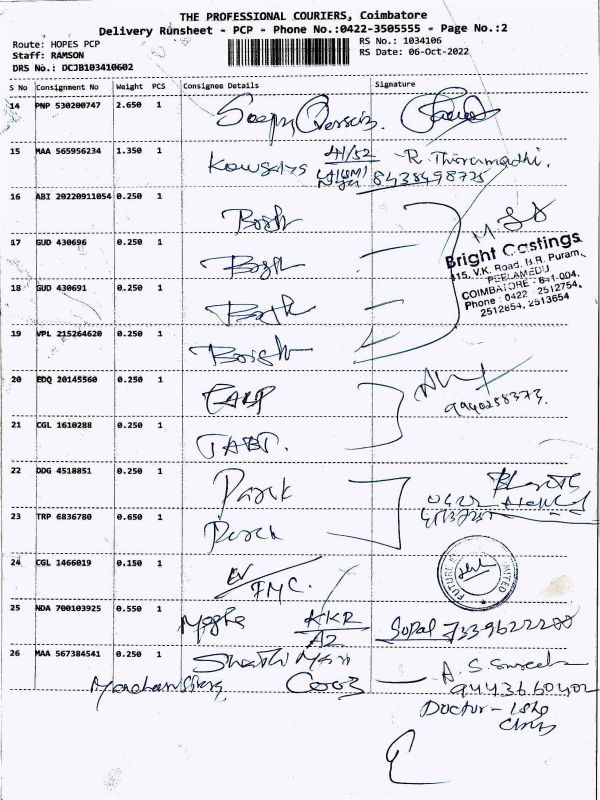 THE PROFESSIONAL COURIERS, Coimbatore
Delivery Runsheet - PCP - Phone No.:0422-3505555 - Page No.:2
Route: HOPES PCP
RS No.: 1034106
Staff: RAMSON
RS Date: 06-Oct-2022
DRS No.: DCJB103410602
S No Consignment No Weight PCS Consignee Details Signature
14 PNP 530200747 2.650 1
15 MAA 565956234 1.350 1 Kowsalya 41/52 R. Thirumadhi.
8438498725
16 ABI 20220911054 0.250 1 Bosh
17 GUD 430696 0.250 1 Bosh
Bright Castings
115, V.K. Road, B.R. Puram,
PEELAMEDU
COIMBATORE - 641-004.
Phone : 0422 - 2512754,
2512854, 2513654
18 GUD 430691 0.250 1
19 VPL 215264620 0.250 1
20 EDQ 20145560 0.250 1
9940258373.
21 CGL 1610288 0.250 1
22 DDG 4518851 0.250 1 Park
23 TRP 6836780 0.650 1
24 CGL 1466019 0.150 1 FMC.
25 NDA 700103925 0.550 1 Megha AKR Gopal 7339622200
A2
26 MAA 567384541 0.250 1 Shakthi Mari
9443660402
Doctor